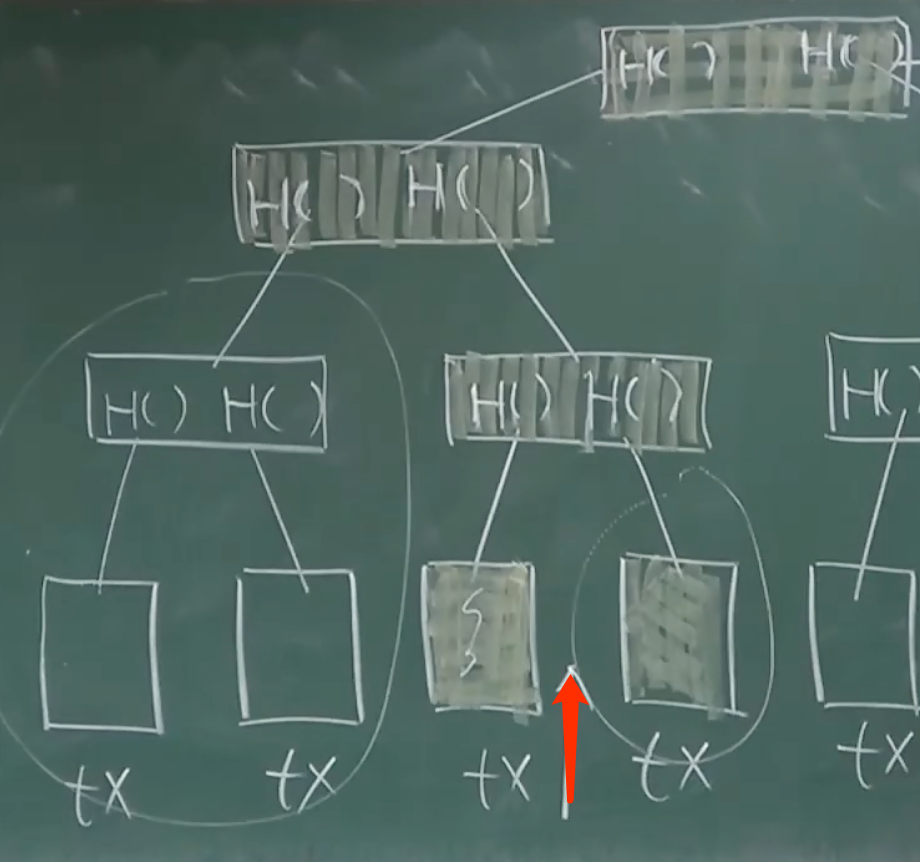 H( ) H( )
H( ) H( )
H( ) H( ) H( ) H( ) H(
tx tx tx tx tx